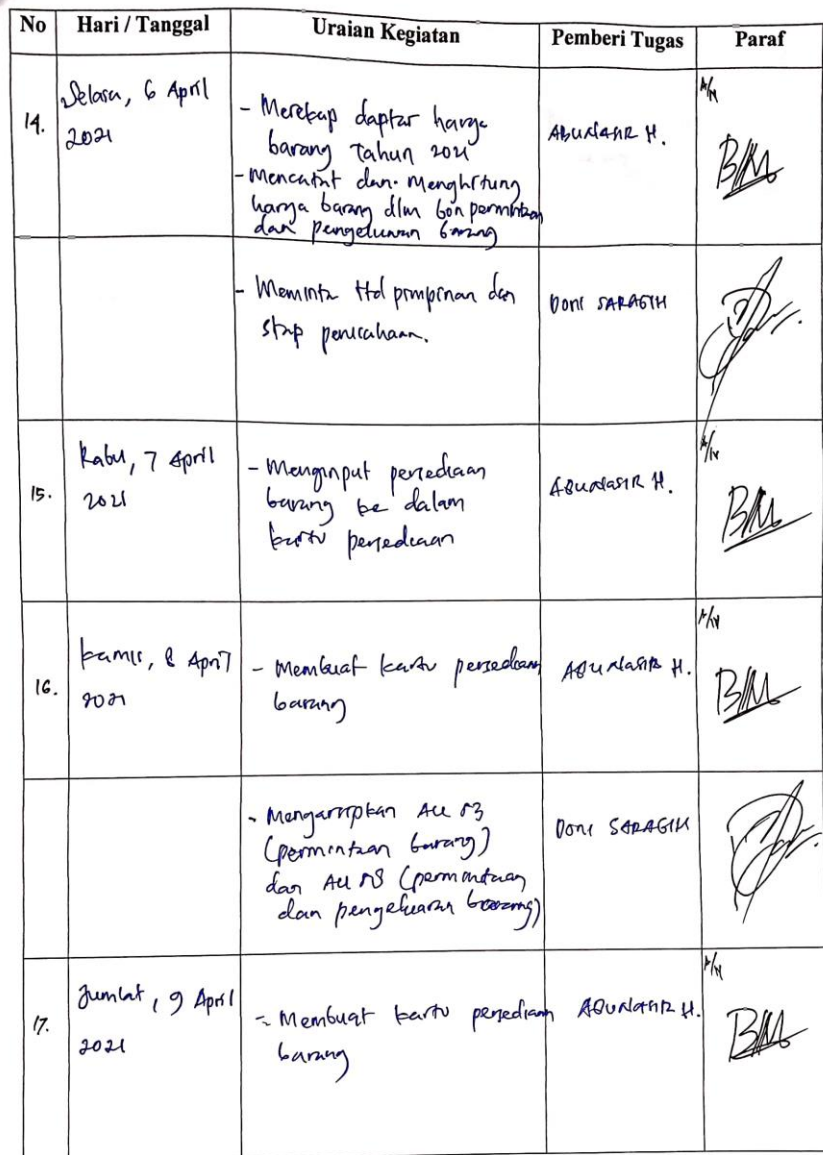 No Hari / Tanggal Uraian Kegiatan Pemberi Tugas Paraf
14. Selasa, 6 April
2021
- Merekap daptar harga
barang tahun 2021
- Mencatat dan menghitung
harga barang dlm bon permintaan
dan pengeluaran barang
ABUNASIR H.
- Meminta ttd pimpinan dan
stap perusahaan.
DONI SARAGIH
15. Rabu, 7 April
2021
- Menginput persediaan
barang ke dalam
kartu persediaan
ABUNASIR H.
16. Kamis, 8 April
2021
- Membuat kartu persediaan
barang
ABUNASIR H.
- Mengarsipkan AU
(permintaan barang)
dan AU (permintaan
dan pengeluaran barang)
DONI SARAGIH
17. Jumlat, 9 April
2021
- Membuat kartu persediaan
barang
ABUNASIR H.